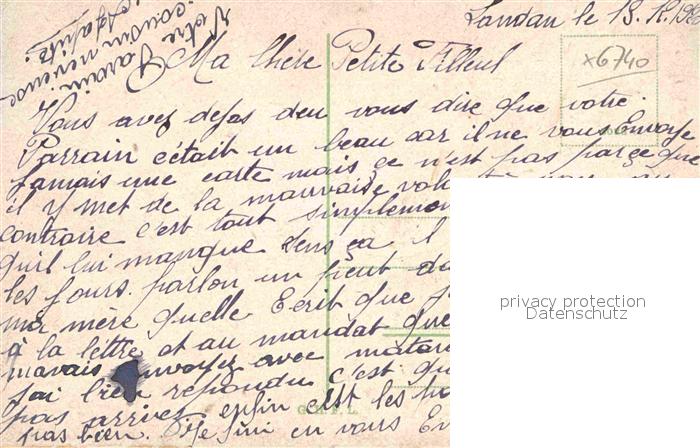 Landau le 18.
x6740
Votre Parrain
cousin
Ma Chère Petite Filleul
Vous avez dejas deu vous dire que votre
Parrain c'était un beau car il ne vous Envoye
Jamais une carte mais ce n'est pas parçe que
il y met de la mauvaise
contraire c'est tout simplemen
qu'il lui manque dens ça il
les jours. parlon un peut du
ma mère quelle Ecrit que
à la lettre et au mandat que
mavais Envoyez avec
jai bien repondu c'est qu
pas arrivez enfin c'est les
pas bien. Je fini en vous En
privacy protection
Datenschutz